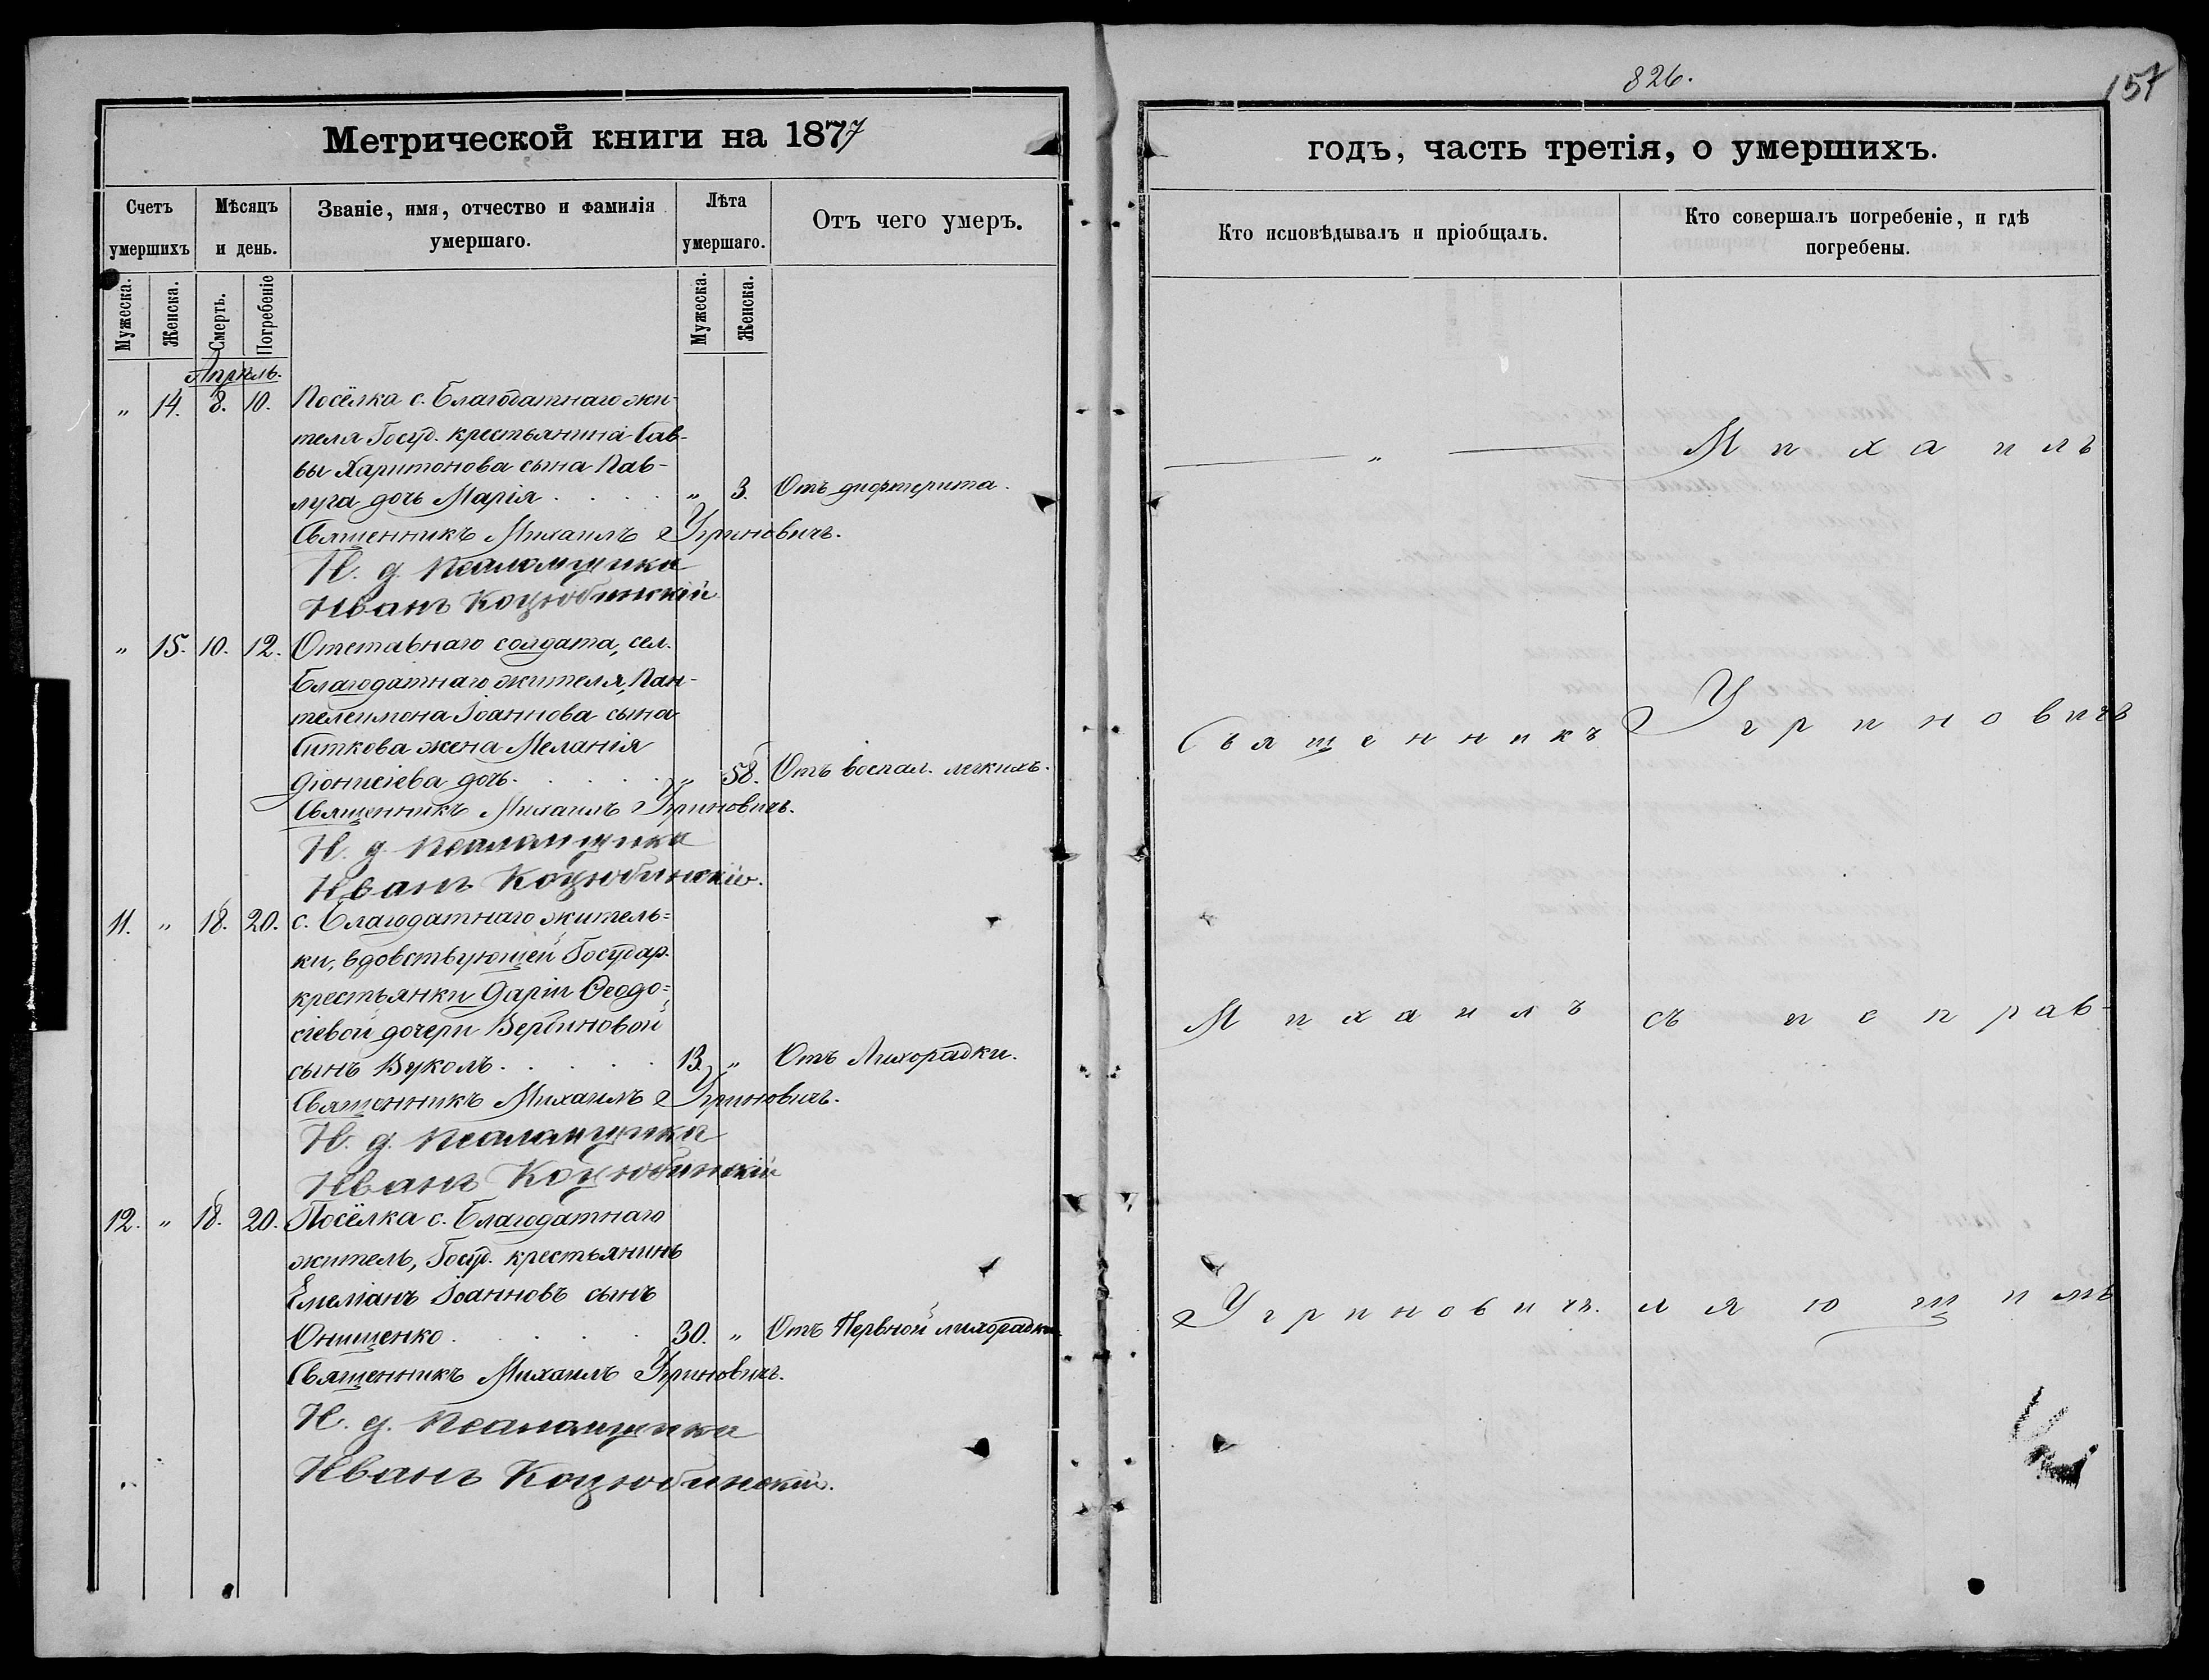 826.
157
Метрической книги на 1877
годъ, часть третія, о умершихъ.
Счетъ умершихъ
Мѣсяцъ и день.
Званіе, имя, отчество и фамилія умершаго.
Лѣта умершаго.
Отъ чего умеръ.
Кто исповѣдывалъ и пріобщалъ.
Кто совершалъ погребеніе, и гдѣ погребены.
Мужеска. Женска. Смерть. Погребеніе Мужеска. Женска.
Апрѣль.
„ 14. 8. 10. Посёлка с. Благодатнаго жи-
теля Госуд. крестьянина Сав-
вы Харитонова сына Пав-
луга дочь Марія . . . . „ 3. Отъ дифтерита.
Священникъ Михаилъ Угриновичъ.
И. д. Псаломщика
Иванъ Коцюбинскій
„ 15. 10. 12. Отставнаго солдата, сел.
Благодатнаго жителя, Пан-
телеимона Іоаннова сына
Ситкова жена Меланія
Діонисіева дочь . . . . „ 58. Отъ воспал. легкихъ.
Священникъ Михаилъ Угриновичъ.
И. д. Псаломщика
Иванъ Коцюбинскій.
11. „ 18. 20. с. Благодатнаго житель=
ки, вдовствующей Государ.
крестьянки Даріи Ѳеодо=
сіевой дочери Вербиновой
сынъ Вуколъ . . . . 13. „ Отъ Лихорадки.
Священникъ Михаилъ Угриновичъ.
И. д. Псаломщика
Иванъ Коцюбинскій
12. „ 18. 20. Посёлка с. Благодатнаго
житель, Госуд. крестьянинъ
Емеліанъ Іоанновъ сынъ
Онищенко . . . . 30. „ Отъ Нервной лихорадки.
Священникъ Михаилъ Угриновичъ.
И. д. Псаломщика
Иванъ Коцюбинскій.
— „ — Михаилъ
Священникъ Угриновичъ
Михаилъ съ исправ-
Угриновичъ. ляющимъ